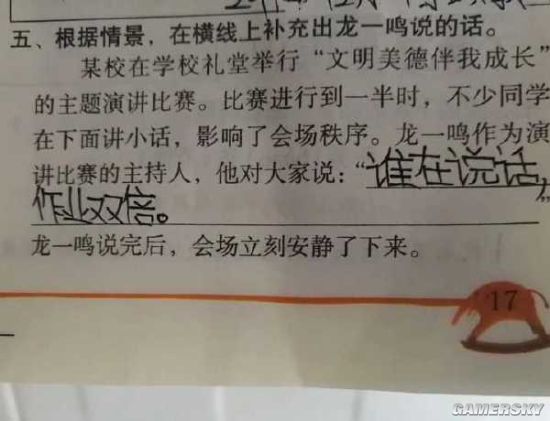 五、根据情景，在横线上补充出龙一鸣说的话。
某校在学校礼堂举行“文明美德伴我成长”
的主题演讲比赛。比赛进行到一半时，不少同学
在下面讲小话，影响了会场秩序。龙一鸣作为演
讲比赛的主持人，他对大家说：“谁在说话，
作业双倍。”
龙一鸣说完后，会场立刻安静了下来。
17
GAMERSKY